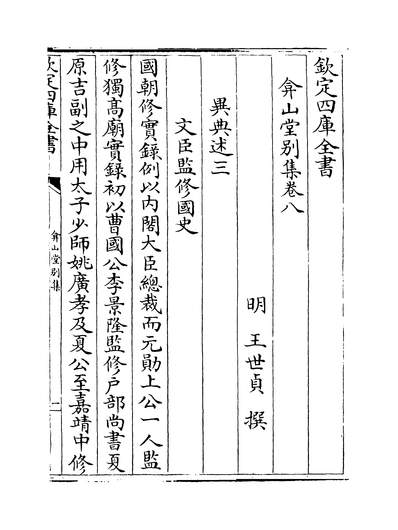 欽定四庫全書
弇山堂別集卷八
明 王世貞 撰
異典述三
文臣監修國史
國朝修實錄例以内閣大臣總裁而元勛上公一人監
修獨髙廟實錄初以曹國公李景隆監修户部尚書夏
原吉副之中用太子少師姚廣孝及夏公至嘉靖中修
欽定四庫全書
弇山堂别集